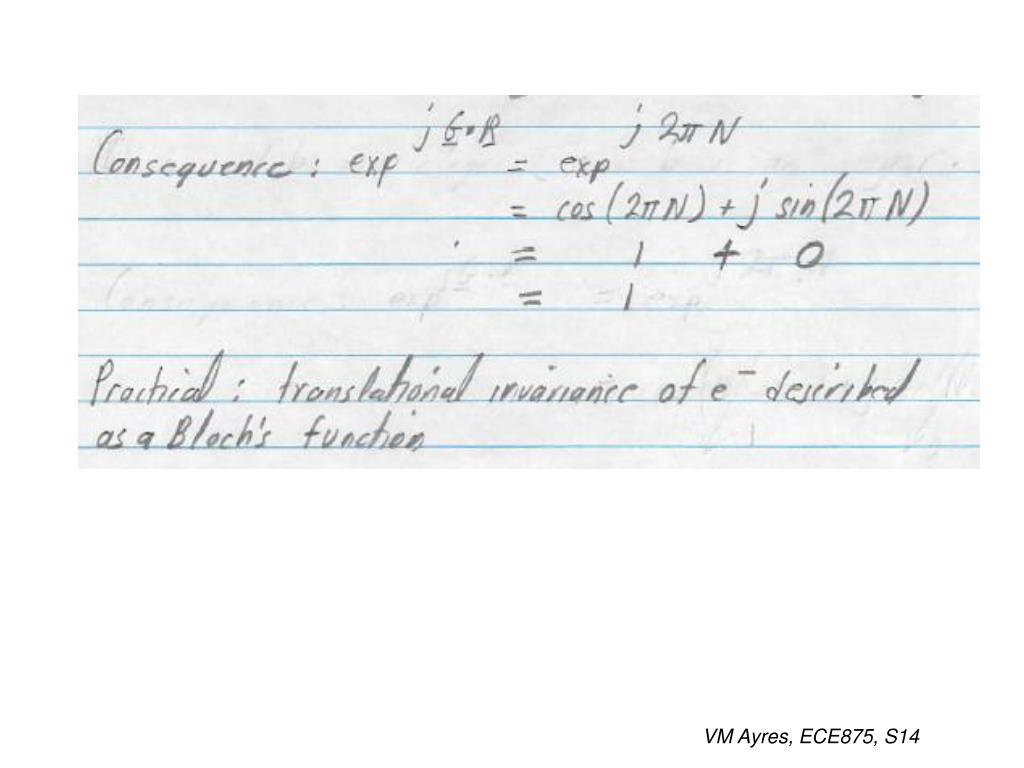 Consequence : exp j G·R = exp j 2π N
= cos (2πN) + j sin(2π N)
= 1 + 0
= 1
Practical : translational invariance of e⁻ described
as a Bloch's function
VM Ayres, ECE875, S14